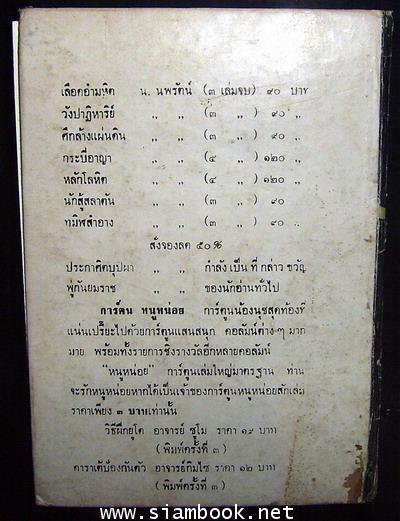 เลือดอำมหิต น. นพรัตน์ (๓ เล่มจบ) ๙๐ บาท
วังปาฏิหาริย์ ,, ,, (๓ ,, ) ๙๐ ,,
ศึกล้างแผ่นดิน ,, ,, (๓ ,, ) ๙๐ ,,
กระบี่อาญา ,, ,, (๔ ,, ) ๑๒๐ ,,
หลักโลหิต ,, ,, (๔ ,, ) ๑๒๐ ,,
นักสู้สลาตัน ,, ,, (๓ ,, ) ๙๐
ทมิฬสำอาง ,, ,, (๓ ,, ) ๙๐ ,,
สั่งจองลด ๕๐%
ประกาศิตบุปผา ,, ,, กำลัง เป็น ที่ กล่าว ขวัญ
พู่กันยมราช ,, ,, ของนักอ่านทั่วไป
การ์ตูน หนูหน่อย การ์ตูนน้องนุชสุดท้องที่
แน่นเปรี๊ยะไปด้วยการ์ตูนแสนสนุก คอลัมน์ต่าง ๆ มาก
มาย พร้อมทั้งรายการชิงรางวัลอีกหลายคอลัมน์
"หนูหน่อย" การ์ตูนเล่มใหญ่มาตรฐาน ท่าน
จะรักหนูหน่อยหากได้เป็นเจ้าของการ์ตูนหนูหน่อยสักเล่ม
ราคาเพียง ๓ บาทเท่านั้น
วิธีฝึกยูโด อาจารย์ ซูโม ราคา ๑๕ บาท
(พิมพ์ครั้งที่ ๓)
คาราเต้ป้องกันตัว อาจารย์กิมไซ ราคา ๑๒ บาท
(พิมพ์ครั้งที่ ๓)
www.siambook.net
www.siambook.net